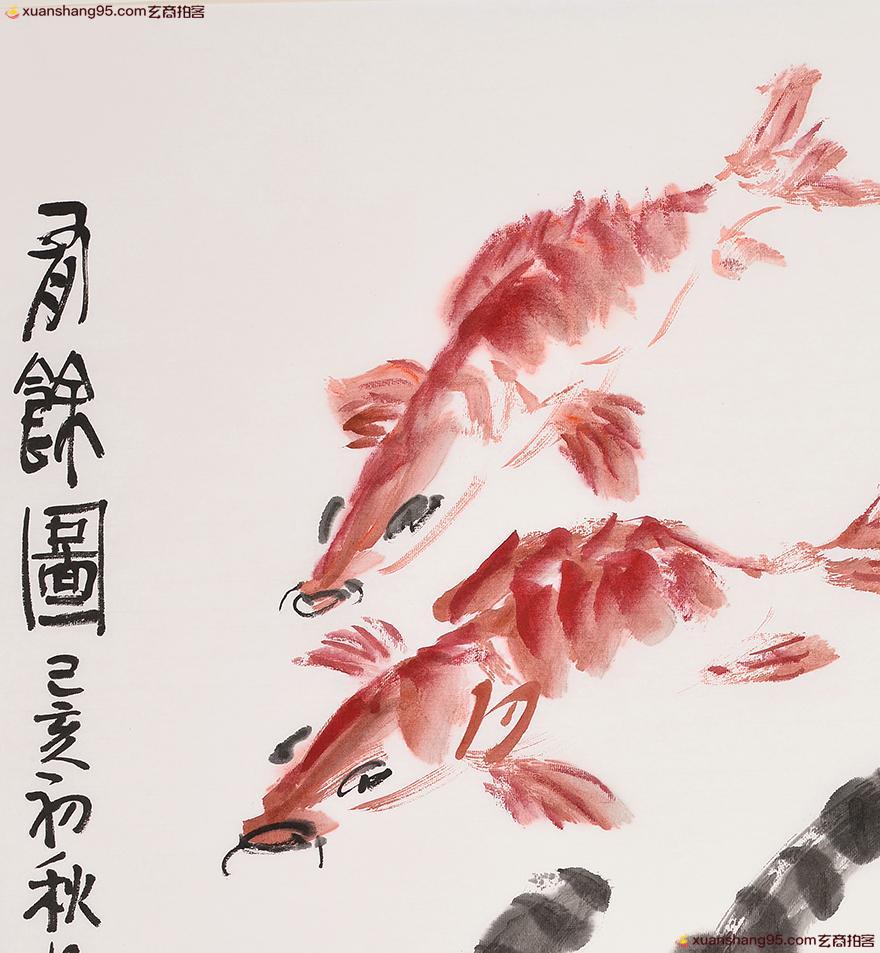 xuanshang95.com玄商拍客
有餘圖
己亥初秋
xuanshang95.com玄商拍客